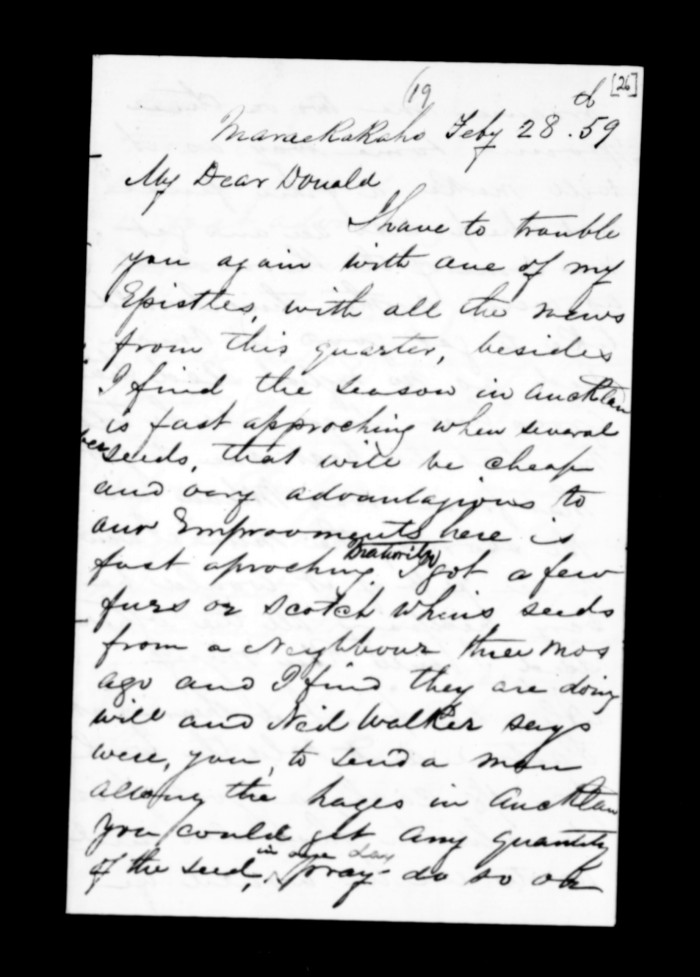 19
[26]
Maraekakaho Feby 28. 59
My Dear Donald
I have to trouble
you again with one of my
Epistles, with all the news
from this quarter, besides
I find the season in Aucklan
is fast approching when several
seeds, that will be cheap
and very advantagious to
our Improvments here is
fast aproching I got a few
furs or Scotch whins seeds
from a Neighbour three mos
ago and I find they are doing
will and Neil Walker says
were, you, to send a man
allong the hages in Aucklan
you could get any quantity
of the seed, in one day pray do so or